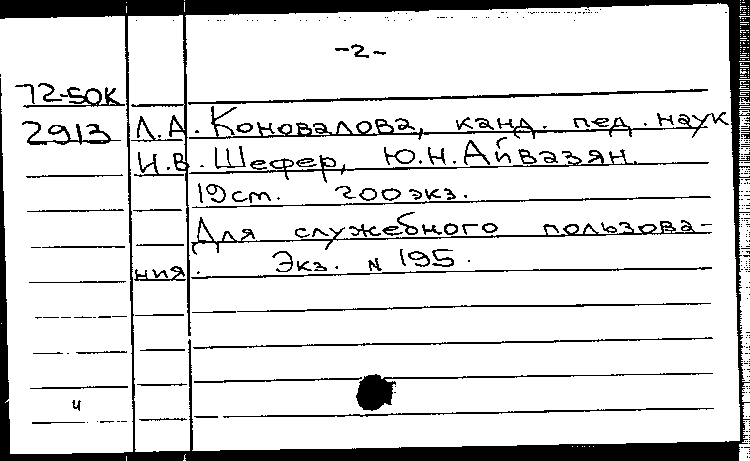 -2-
72-50К
2913 Л.А. Коновалова, канд. пед. наук
И.В. Шефер, Ю.Н. Айвазян.
19 ст. 200 экз.
Для служебного пользова-
ния. Экз. N 195.
ч